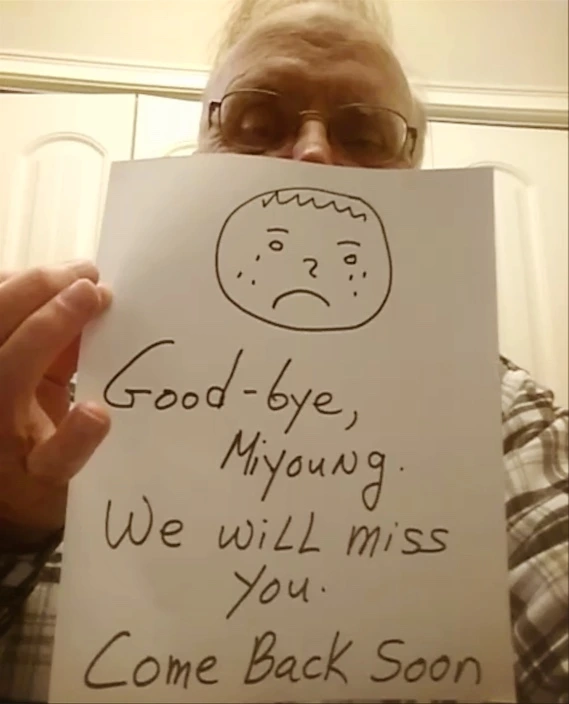 Good-bye,
Miyoung.
We will miss
you.
Come Back Soon